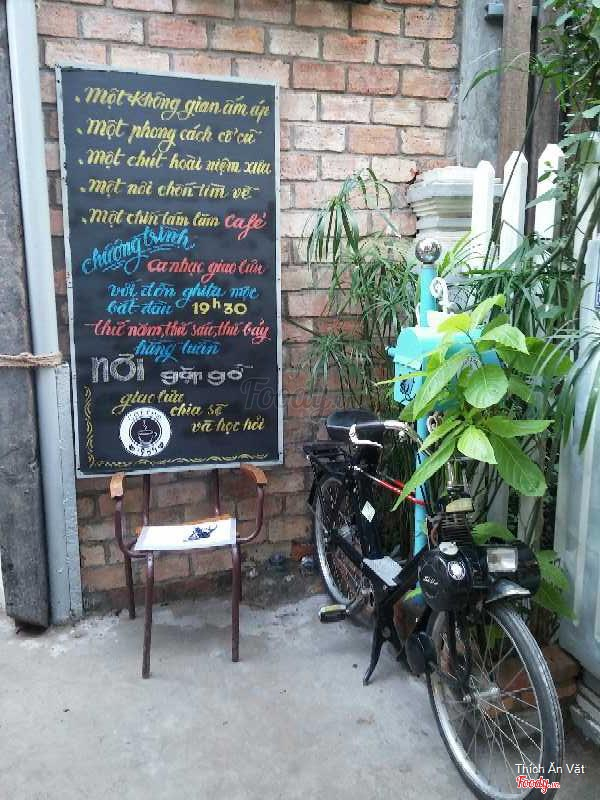 . Một không gian ấm áp
. Một phong cách cổ cũ
. Một chút hoài niệm xưa
. Một nơi chốn tìm về
. Một chín lăm lăm café
chương trình
ca nhạc giao lưu
với đờn ghita mộc
bắt đầu 19h30
thứ năm, thứ sáu, thứ bảy
hằng tuần
nơi gặp gỡ
giao lưu
chia sẽ
và học hỏi
1955
Foody.vn
Thích Ăn Vặt
Foody.vn